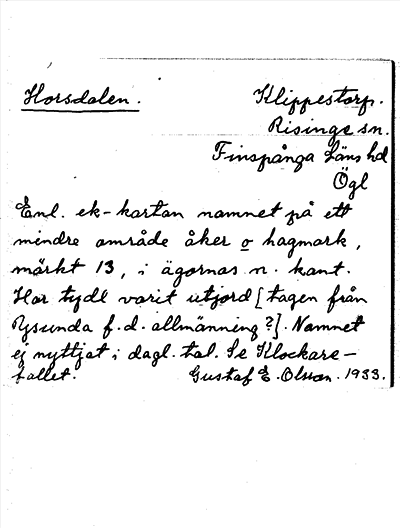 Horsdalen.
Klippestorp.
Risinge sn.
Finspånga Läns hd
Ögl
Enl. ek-kartan namnet på ett
mindre område åker o hagmark,
märkt 13, i ägornas n. kant.
Har tydl varit utjord [tagen från
Rysunda f.d. allmänning?]. Namnet
ej nyttjat i dagl. tal. Se Klockare-
fallet.
Gustaf E. Olsson. 1933.